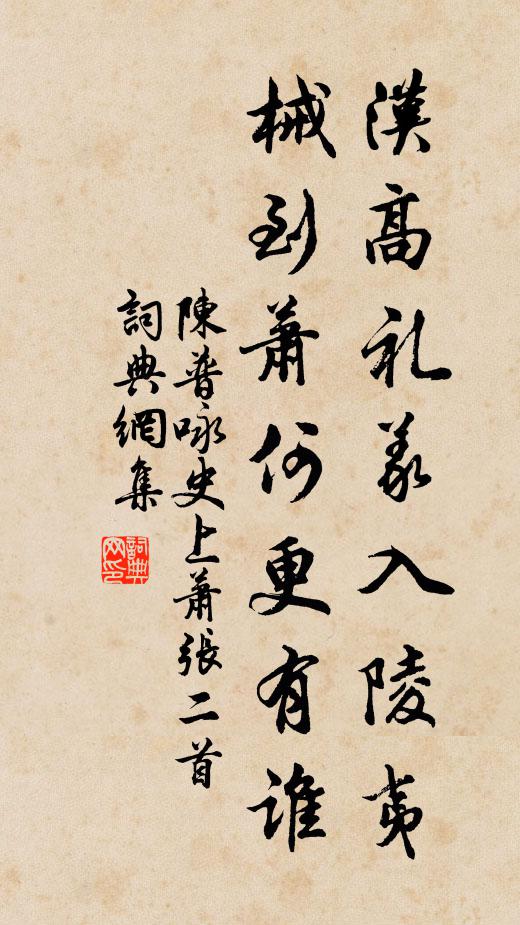 漢高礼義入陵夷
械到蕭何更有誰
陳普咏史上蕭張二首
詞典網集
詞典網印